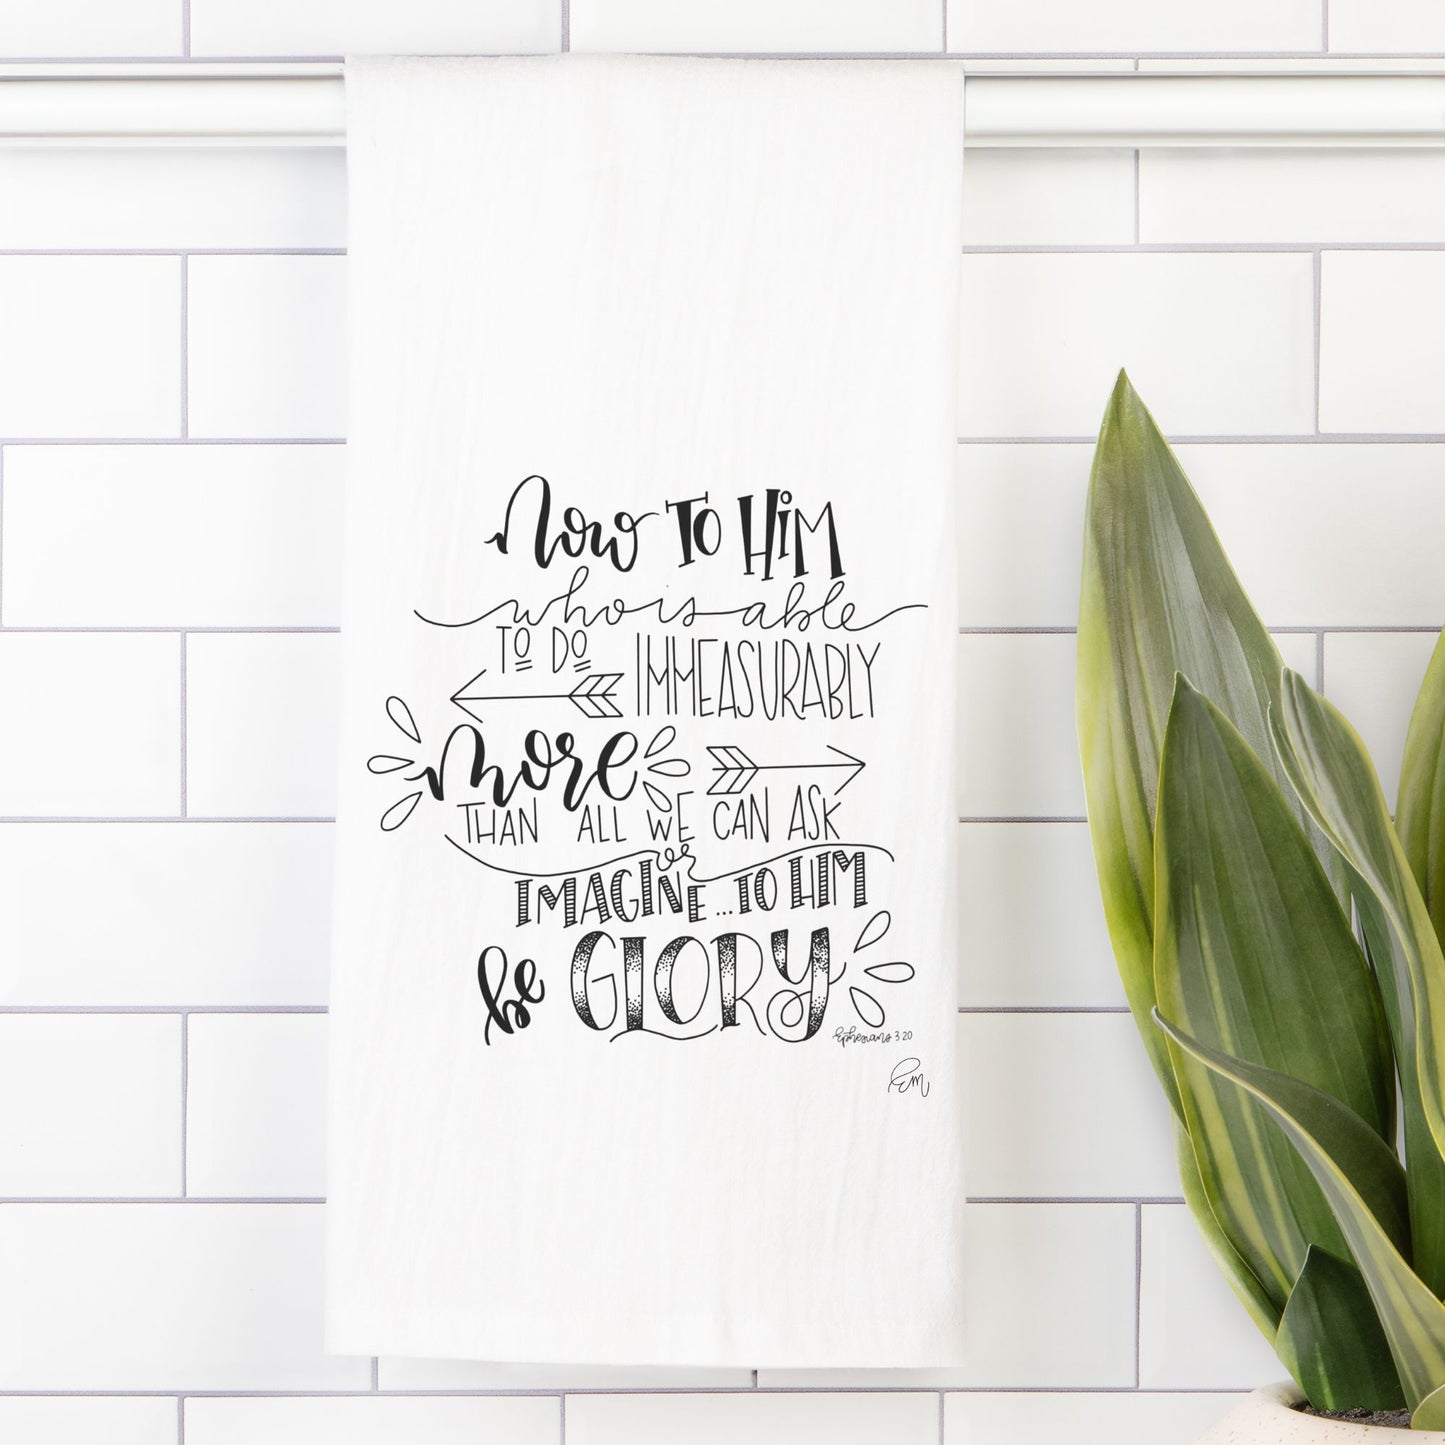 Now TO HiM
who is able
TO DO IMMEASURABLY
MORE
THAN ALL WE CAN ASK
or
IMAGINE...TO HIM
be GLORY
Ephesians 3:20